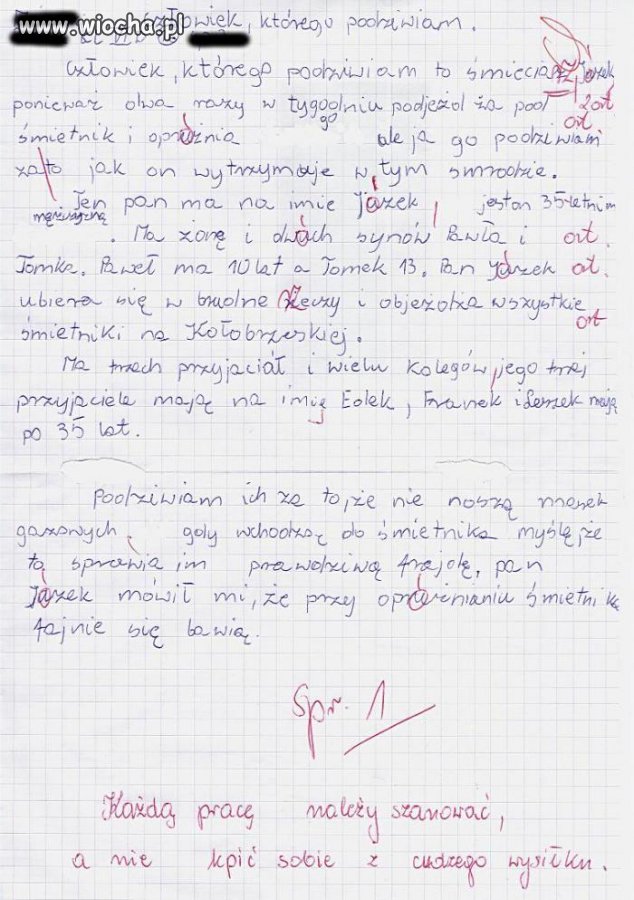 www.wiocha.pl
człowiek, którego podziwiam.
Człowiek, którego podziwiam to śmieciarz Jazek
ponieważ dwa razy w tygodniu podjeżdża pod 2 ort
go ort
śmietnik i oprużnia ale ja go podziwiam
za to jak on wytrzymuje w tym smrodzie.
Ten pan ma na imie Jazek jest on 35-letnim
mężczyzną
. Ma żonę i dwuch synów Pawła i ort.
Tomka. Paweł ma 10 lat a Tomek 13. Pan Jazek ort.
ubiera się w brudne rzeczy i objeżdża wszystkie
ort
śmietniki na Kołobrzeskiej.
Ma trzech przyjaciół i wielu kolegów, jego trzej
przyjaciele mają na imię Eolek, Franek i Leszek mają
po 35 lat.
Podziwiam ich za to, że nie noszą masek
gazowych, gdy wchodzą do śmietnika myślę, że
to sprawia im prawdziwą frajdę, pan
Jazek mówił mi, że przy oprużnianiu śmietnika
fajnie się bawią.
Spr. 1
Każdą pracę należy szanować,
a nie kpić sobie z cudzego wysiłku.